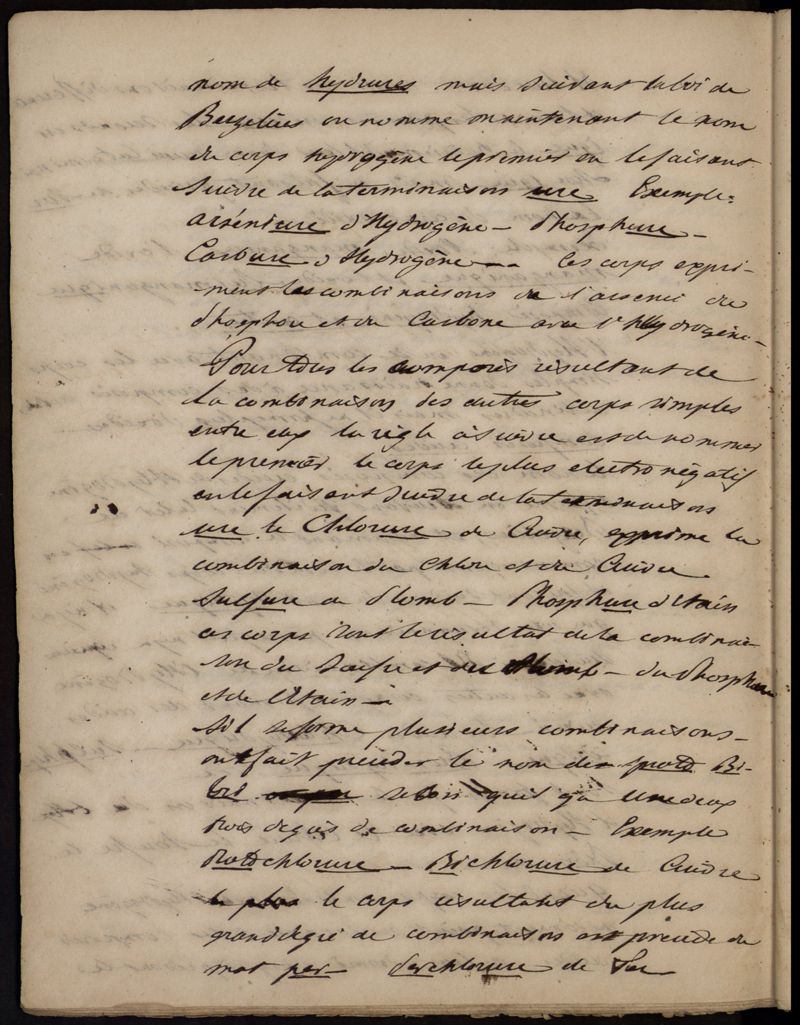 nom de hydrures mais suivant la loi de
Berzelius on nomme maintenant le nom
du corps hydrogène le premier en le faisant
suivre de la terminaison ure Exemple:
arséniure d'Hydrogène - Phosphure -
Carbure d'Hydrogène - Ces corps expri-
ment les combinaisons de l'arsenic du
Phosphore et du Carbone avec l'Hydrogène -
Pour tous les composés résultant de
la combinaison des autres corps simples
entre eux la règle à suivre est de nommer
le premier le corps le plus electro négatif
en le faisant suivre de la terminaison
ure le Chlorure de Cuivre, exprime la
combinaison du Chlore et du Cuivre
Sulfure de Plomb - Phosphure d'étain
ces corps sont le résultat de la combinai-
son du Soufre et du Plomb - du Phosphore
et de l'étain -
S'il se forme plusieurs combinaisons -
on fait précéder le nom de proto Bi-
selon qu'il y a un deux
trois degrés de combinaison - Exemple
Protochlorure - Bichlorure de Cuivre
le corps résultant du plus
grand degré de combinaison est précédé du
mot per - Perchlorure de Fer